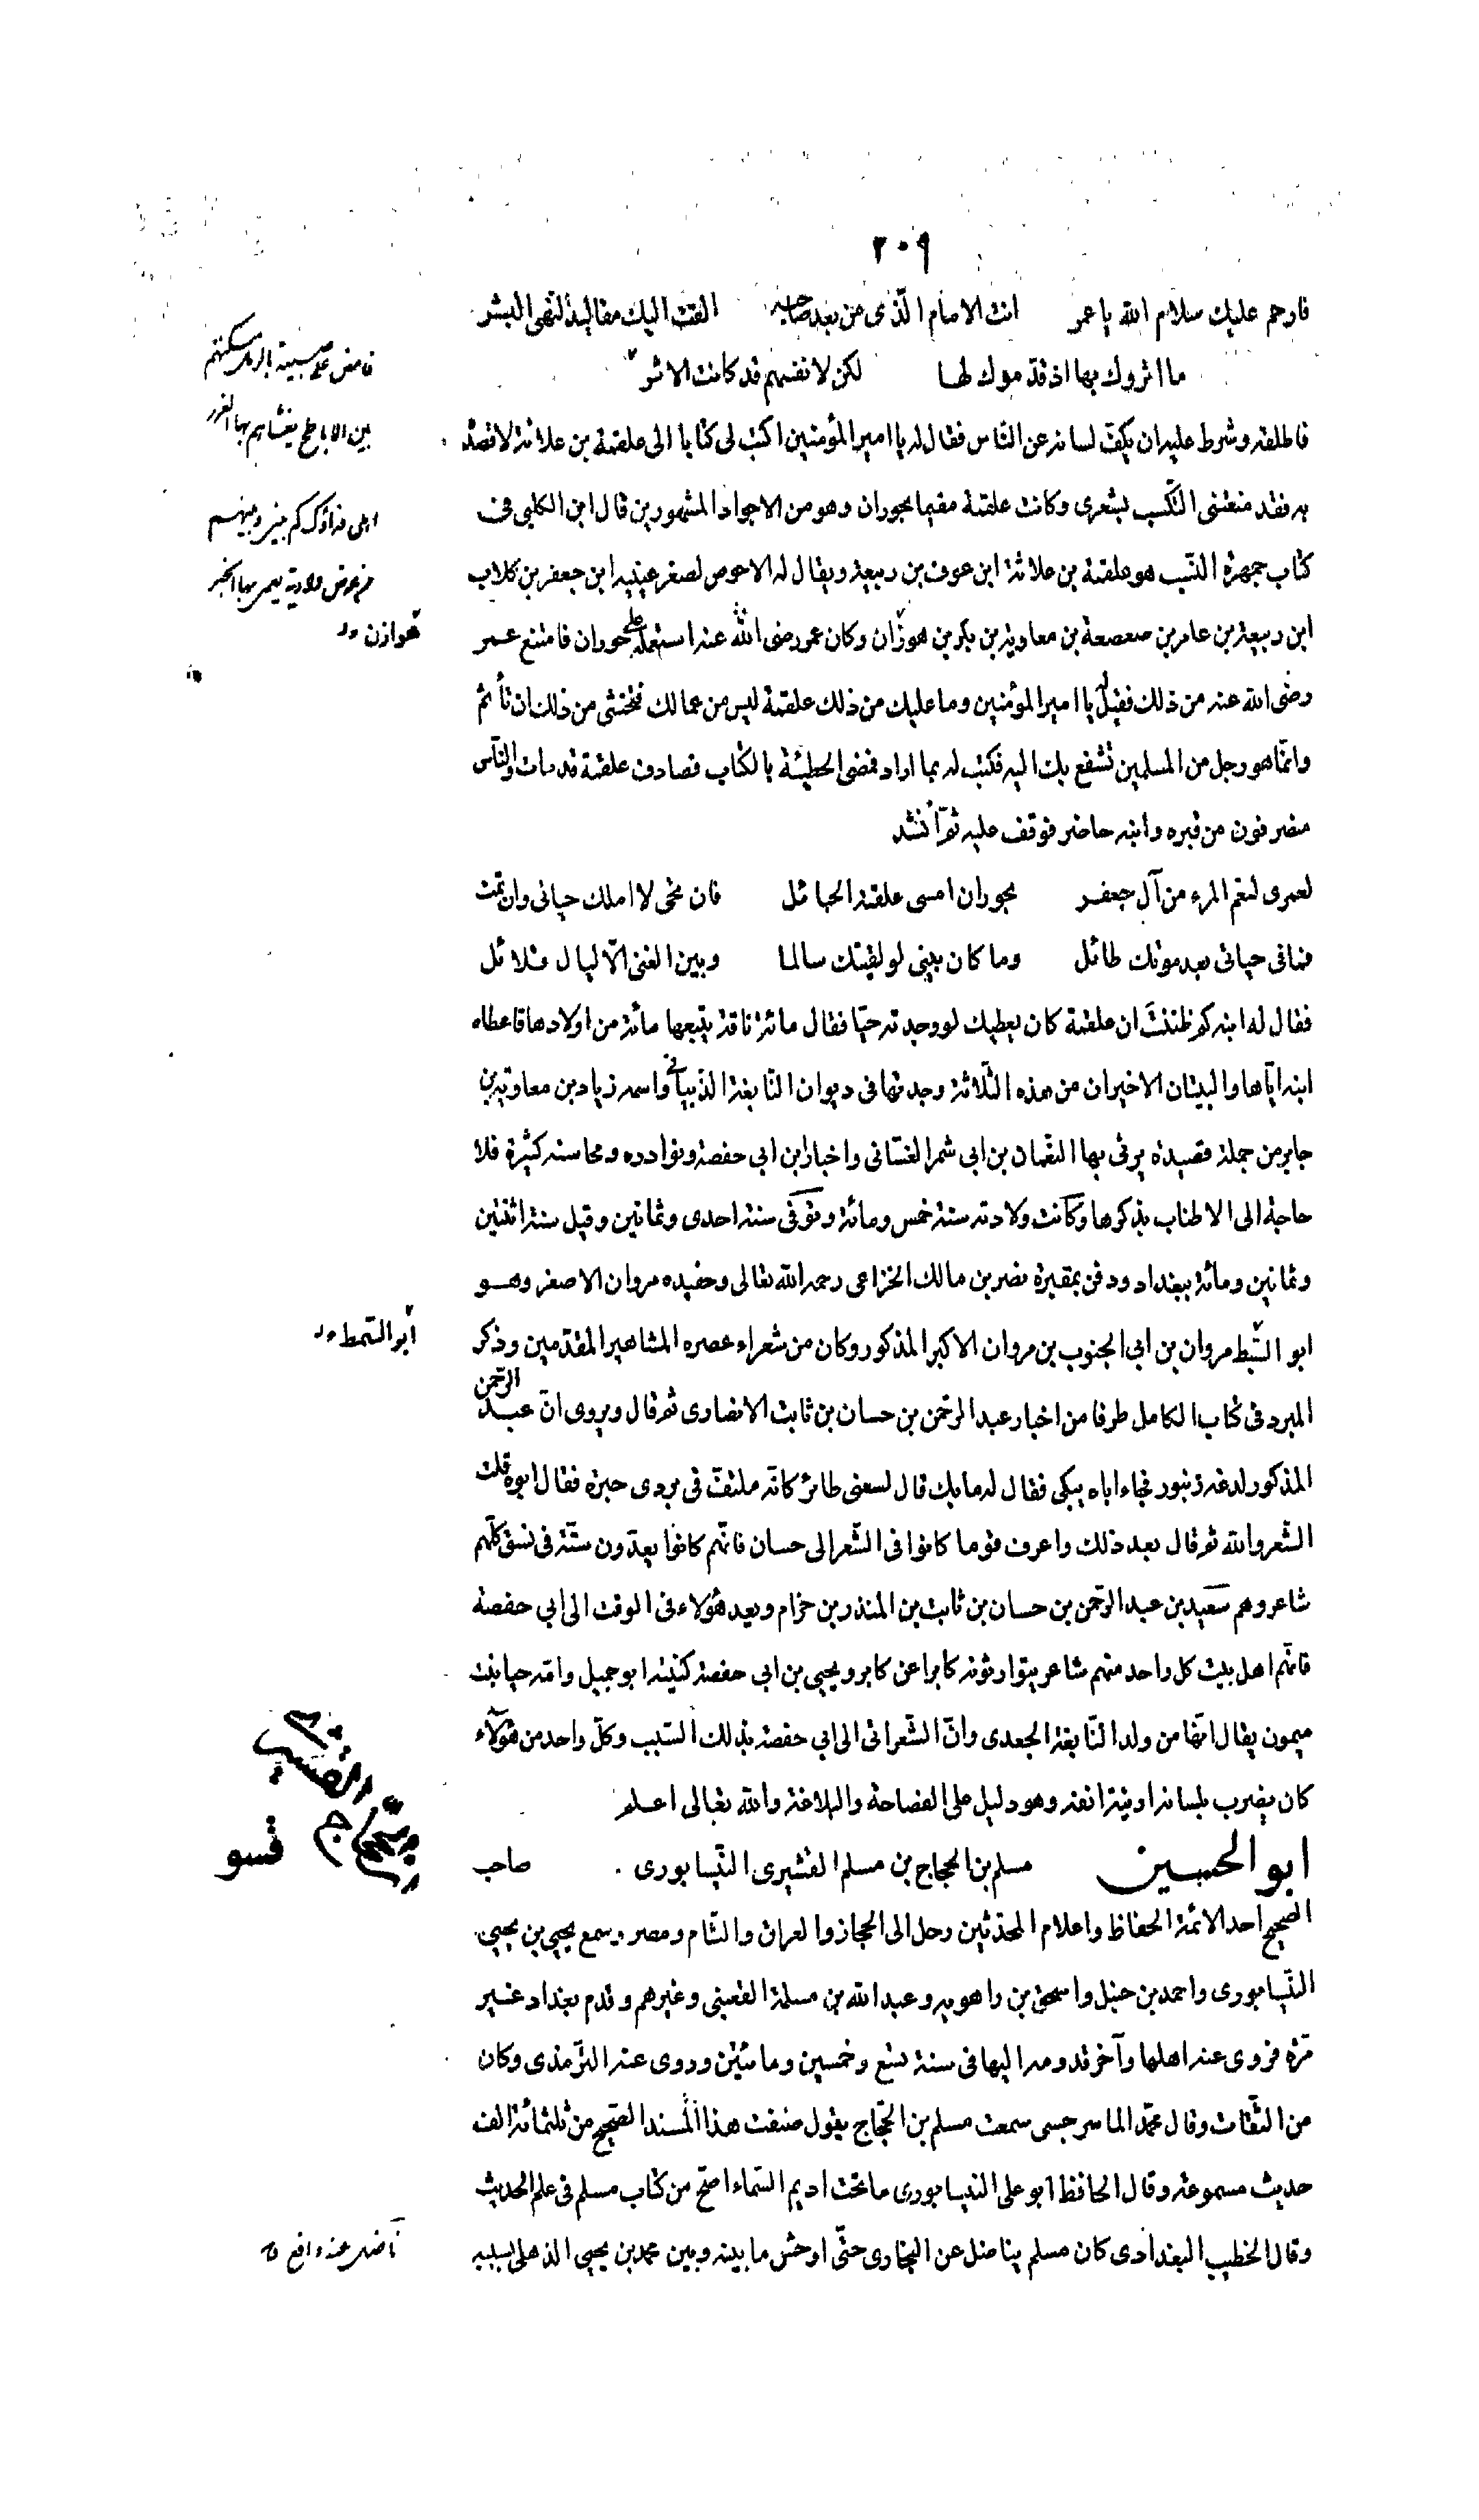 ٢٠٩
فارحم عليك سلام الله يا عمر انت الامام الذى من بعد صاحبه القت اليك مقاليد النهى البشر
ما اثروك بها اذ قدّموك لها لكن لانفسهم قد كانت الاثر
فاطلقه وشرط عليه ان يكفّ لسانه عن النّاس فقال له يا امير المؤمنين اكتب لى كتابا الى علقمة بن علاثة لاقصده
به فقد منعتنى التّكسّب بشعرى وكانت علقمة مقيما بحوران وهو من الاجواد المشهورين قال ابن الكلبى فى
كتاب جمهرة النّسب هو علقمة بن علاثة ابن عوف بن ربيعة ويقال له الاحوص لصغر عينيه ابن جعفر بن كلاب
ابن ربيعة بن عامر بن صعصعة بن معاوية بن بكر بن هوزان وكان عمر رضى الله عنه استعمله على حوران فامتنع عمر
رضى الله عنه من ذلك فقيل له يا امير المؤمنين وما عليك من ذلك علقمة ليس من عمالك فتخشى من ذلك ان تأثم
وانّما هو رجل من المسلمين تشفع بك اليه فكتب له بما اراد فمضى الحطيئة بالكتاب فصادف علقمة قد مات والنّاس
منصرفون من قبره وابنه حاضر فوقف عليه ثمّ أنشد
لعمرى لنعم المرء من آل جعفر بحوران امسى علقته الحبائل فان تحى لا املك حياتى وان تمت
فما فى حياتى بعد موتك طائل وما كان بينى لو لقيتك سالما وبين الغنى الّا ليال قلائل
فقال له ابنه كم ظننتَ ان علقمة كان يعطيك لو وجدته حيّا فقال مائة ناقة يتبعها مائة من اولادها فاعطاه
ابنه ايّاها والبيتان الاخيران من هذه الثّلاثة وجدتها فى ديوان النّابغة الذّبيانى واسمه زياد بن معاوية بن
جابر من جملة قصيدة يرثى بها النّعمان بن ابى شمر الغسّانى واخبار ابن ابى حفصة ونوادره ومحاسنه كثيرة فلا
حاجة الى الاطناب بذكرها وكانت ولادته سنة خمس ومائة وتوفّى سنة احدى وثمانين وقيل سنة اثنتين
وثمانين ومائة ببغداد ودفن بمقبرة نصر بن مالك الخزاعى رحمه الله تعالى وحفيده مروان الاصغر وهو
ابو السّبط مروان بن ابى الجنوب بن مروان الاكبر المذكور وكان من شعراء عصره المشاهير المقدّمين وذكر
المبرد فى كتاب الكامل طرفا من اخبار عبد الرحّمن بن حسان بن ثابت الانصارى ثم قال ويروى انّ عبد الرحّمن
المذكور لدغه زنبور فجاء اباه يبكى فقال له ما بك قال لسعنى طائر كانّه ملتفّ فى بردى حبرة فقال ابوه قلت
الشّعر والله ثم قال بعد ذلك واعرف قوما كانوا فى الشّعر الى حسان فانّهم كانوا يعدّون ستّة فى نسق كلّهم
شاعر وهم سعيد بن عبد الرحّمن بن حسان بن ثابت بن المنذر بن حزام وبعد هؤلاء فى الوقت الى ابى حفصة
فانّهم اهل بيت كل واحد منهم شاعر يتوارثونه كابرا عن كابر ويحيى بن ابى حفصة كنيته ابو جميل وامّه حيا بنت
ميمون يقال انّها من ولد النّابغة الجعدى وانّ الشّعر اتى الى ابى حفصة بذلك السّبب وكلّ واحد من هؤلآء
كان يضرب بلسانه ارنبة انفه وهو دليل على الفصاحة والبلاغة والله تعالى اعلم
ابو الحسين مسلم بن الحجاج بن مسلم القشيرى النّيسابورى صاحب
الصحيح احد الائمّة الحفاظ واعلام المحدّثين رحل الى الحجاز والعراق والشّام ومصر وسمع يحيى بن يحيى
النّيسابورى واحمد بن حنبل واسحق بن راهويه وعبد الله بن مسلمة القعنبى وغيرهم وقدم بغداد غير
مرّة فروى عنه اهلها وآخر قدومه اليها فى سنة تسع وخمسين ومائتين وروى عنه التّرمذى وكان
من الثّقات وقال محمّد الماسرجسى سمعت مسلم بن الحجّاج يقول صنفت هذا المسند الصّحيح من ثلثمائة الف
حديث مسموعة وقال الحافظ ابو على النيسابورى ما تحت اديم السّماء اصحّ من كتاب مسلم فى علم الحديث
وقال الخطيب البغدادى كان مسلم يناضل عن البخارى حتّى اوحش ما بينه وبين محمد بن يحيى الذهلى بسببه
فامنن على صبية بالرمل مسكنهم
بين الاباطح يغشاهم بها القرر
اهلى فداؤك كم بينى وبينهم
من عرض داوية يعمى بها الخبر
هوازن
أبو السّمط
مسلم بن الحجاج القشيرى